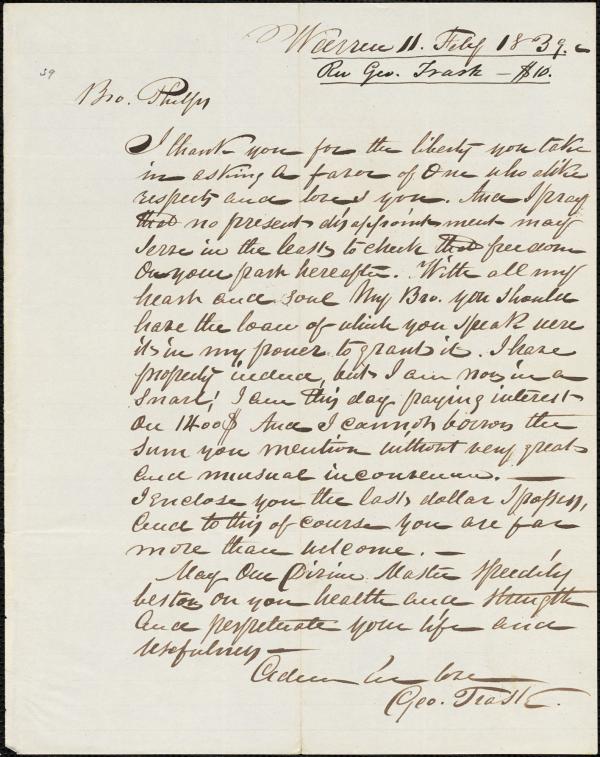 Warren 11. Feby 1839.
Rev Geo. Trask — $10.
39
Bro. Phelps
I thank you for the liberty you take
in asking a favor of one who alike
respects and loves you. And I pray
that no present disappointment may
serve in the least to check that freedom
on your part hereafter. With all my
heart and soul My Bro. you should
have the loan of which you speak were
it in my power to grant it. I have
property indeed, but I am now in a
snare; I am this day paying interest
on 1400$ And I cannot borrow the
sum you mention without very great
and unusual inconvenience. —
I enclose you the last dollar I possess,
and to this of course you are far
more than welcome. —
May Our Divine Master speedily
bestow on you health and strength
and perpetuate your life and
usefulness —
in love
Geo. Trask.